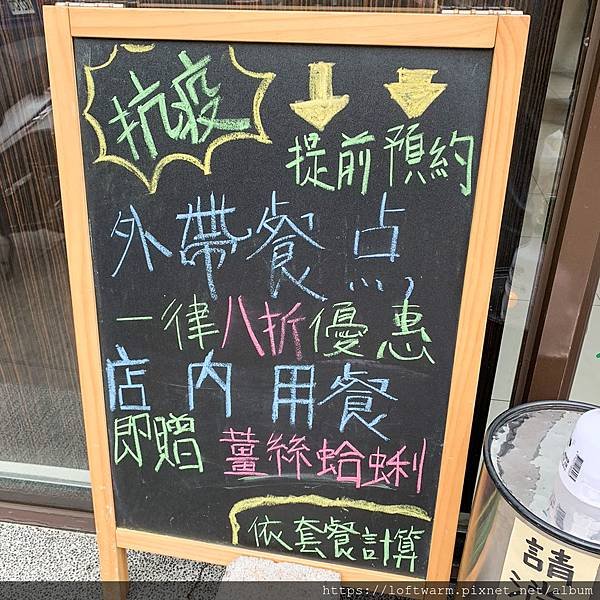 抗疫
提前預約
外帶餐点
一律八折優惠
店內用餐
即贈薑絲蛤蜊
依套餐計算
請
https://loftwarm.pixnet.net/album